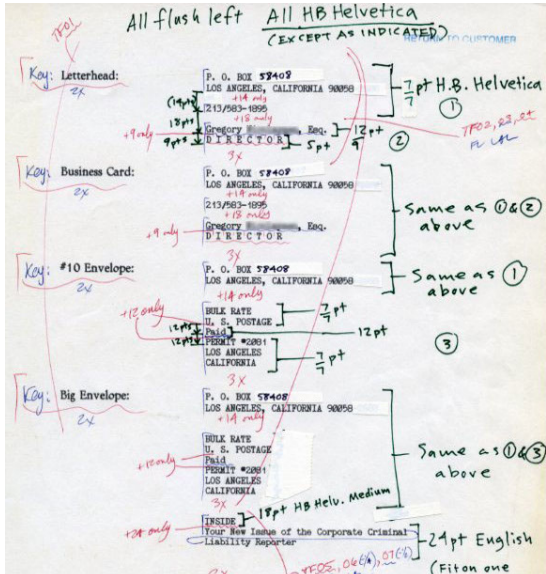 All flush left All HB Helvetica
(EXCEPT AS INDICATED)
TF01
RETURN TO CUSTOMER
Key: Letterhead:
2x
P. O. BOX 58408
LOS ANGELES, CALIFORNIA 90058
+14 only
(14pts)
213/583-1895
+18 only
18pts
Gregory Esq.
+9 only
9pts
DIRECTOR
3x
7/7 pt H.B. Helvetica
①
12/9 pt
5pt
②
TF02, 03, 04
Key: Business Card:
2x
P. O. BOX 58408
LOS ANGELES, CALIFORNIA 90058
+14 only
213/583-1895
+18 only
Gregory Esq.
+9 only
DIRECTOR
3x
Same as ① & ②
above
Key: #10 Envelope:
2x
P. O. BOX 58408
LOS ANGELES, CALIFORNIA 90058
+14 only
Same as ①
above
+12 only
BULK RATE
U. S. POSTAGE
7/7 pt
12pts
Paid
12pt
12pts
PERMIT #2081
LOS ANGELES
CALIFORNIA
7/7 pt
③
3x
Key: Big Envelope:
2x
P. O. BOX 58408
LOS ANGELES, CALIFORNIA 90058
+14 only
BULK RATE
U. S. POSTAGE
+12 only
Paid
PERMIT #2081
LOS ANGELES
CALIFORNIA
3x
Same as ① & ③
above
18pt HB Helv. Medium
INSIDE
+24 only
Your New Issue of the Corporate Criminal
Liability Reporter
24pt English
(Fit on one